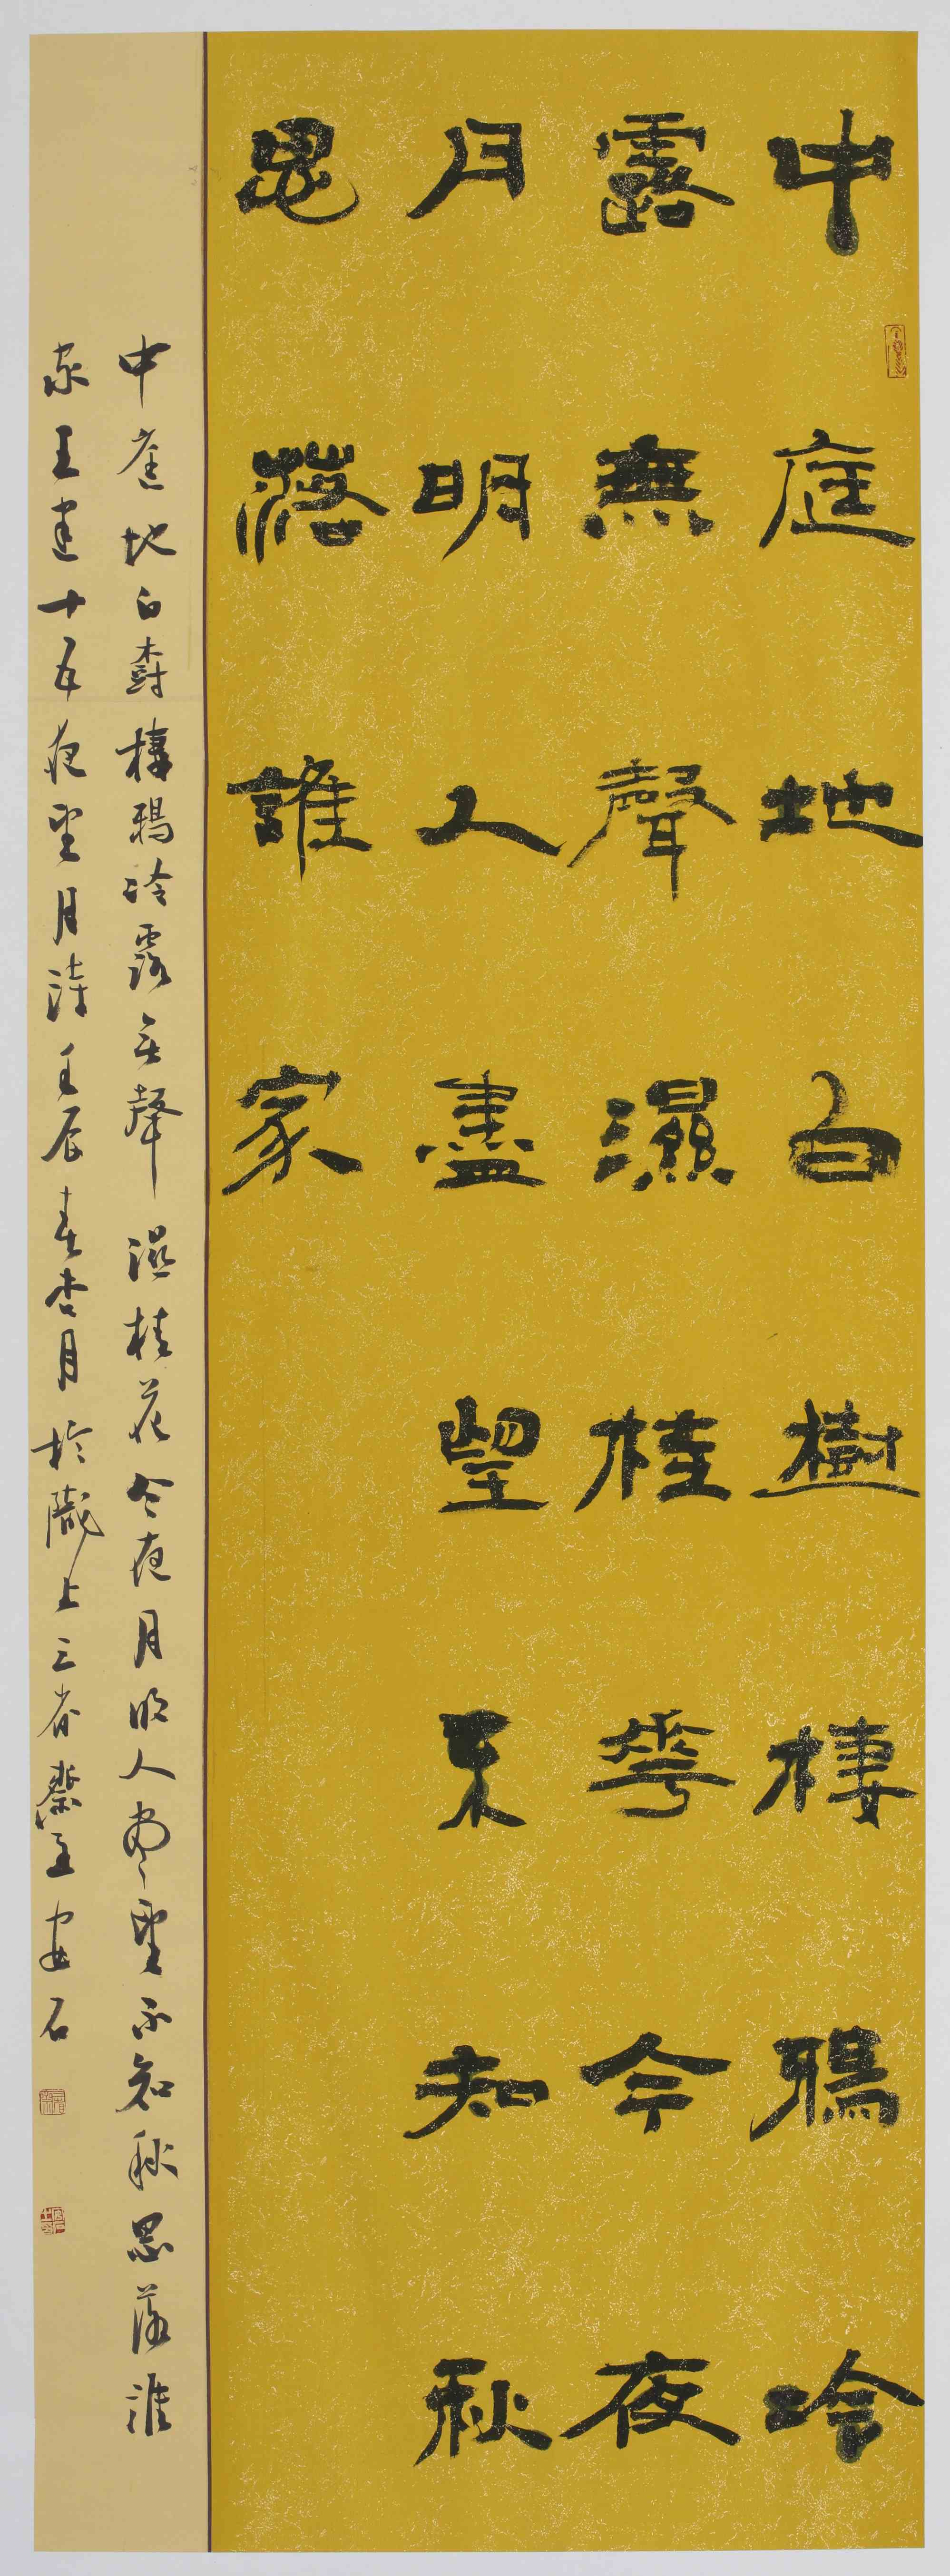 中庭地白樹棲鵶冷
露無聲濕桂華今夜
月明人盡望不知秋
思落誰家
中庭地白樹棲鵶冷露無聲濕桂花今夜月明人盡望不知秋思落誰
家王建十五夜望月詩壬辰春杏月於隴上三省齋主安石